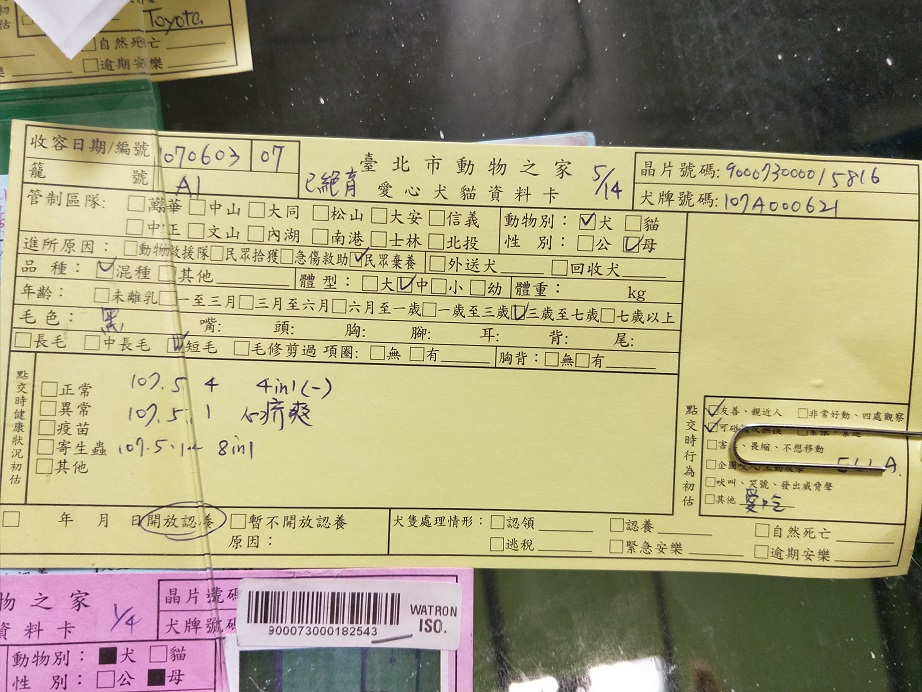 Toyota
自然死亡
逾期安樂
收容日期/編號 1070603 07
籠 號 A1
已絕育
臺北市動物之家
愛心犬貓資料卡
5/14
晶片號碼: 900073000015816
犬牌號碼: 107A000621
管制區隊: □萬華 □中山 □大同 □松山 □大安 □信義
□中正 □文山 □內湖 □南港 □士林 □北投
動物別: ☑犬 □貓
性 別: □公 ☑母
進所原因: □動物救援隊 □民眾拾獲 □急傷救助 ☑民眾棄養 □外送犬 □回收犬
品 種: ☑混種 □其他 體 型: □大 ☑中 □小 □幼 體重: kg
年齡: □未離乳 □一至三月 □三月至六月 □六月至一歲 □一歲至三歲 ☑三歲至七歲 □七歲以上
毛色: 黑 嘴: 頭: 胸: 腳: 耳: 背: 尾:
□長毛 □中長毛 ☑短毛 □毛修剪過 項圈: □無 □有 胸背: □無 □有
點交時健康狀況初估
□正常 107.5 4 4in1(-)
□異常 107.5.1 心疥爽
□疫苗
□寄生蟲 107.5.1 8in1
□其他
點交時行為初估
☑友善、親近人 □非常好動、四處觀察
☑可碰
□害 、畏縮、不想移動
□企圖
□吠叫、哭號、發出威脅聲
□其他 愛吃
□ 年 月 日 開放認養 □暫不開放認養
原因:
犬隻處理情形: □認領 □認養 □自然死亡
□逃脫 □緊急安樂 □逾期安樂
物之家
資料卡 1/4
晶片號碼
犬牌號碼
動物別: ■犬 □貓
性 別: □公 ■母
900073000182543
WATRON
ISO.